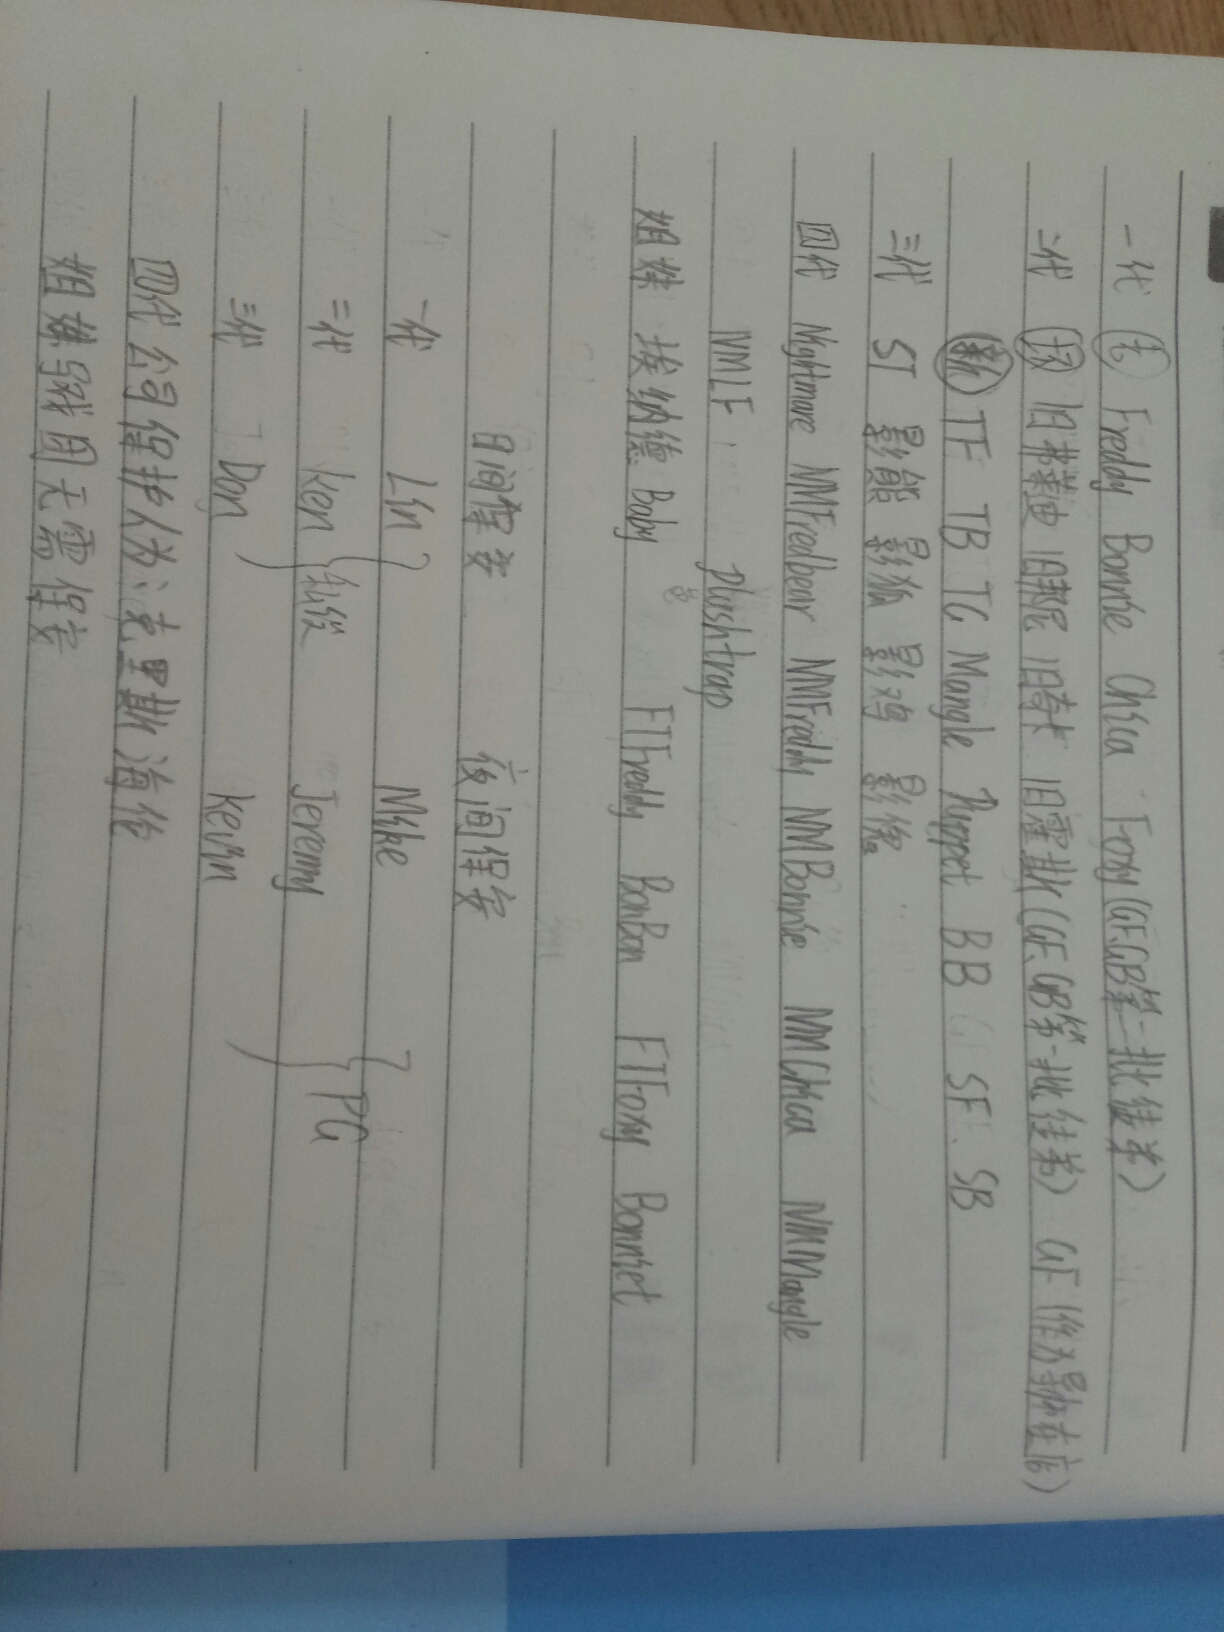 一代 (老) Freddy Bonnie Chica Foxy (GF、GB第一批徒弟)
二代 (旧) 旧弗莱迪 旧邦尼 旧奇卡 旧霍斯 (GF、GB第一批徒弟) GF (作为导师在店)
(新) TF TB TC Mangle Puppet BB SF、SB
三代 ST 影熊 影狐 影鸡 影傀
四代 Nightmare NMFredbear NMFreddy NMBonnie NMChica NMMangle
NMLF plushtrap
姐妹 埃纳德 Baby FTFreddy BonBon FTFoxy Bonnet
日间保安 夜间保安
一代 Lin Mike
二代 Ken Jeremy
三代 Don Kevin
PG
四代 公司保护人为:克里斯 海伦
姐妹 马戏团无需保安